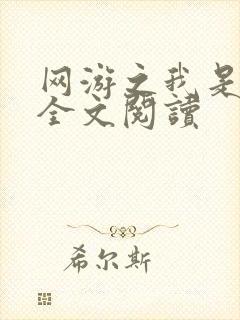 网游之我是
全文閱讀
希尔斯